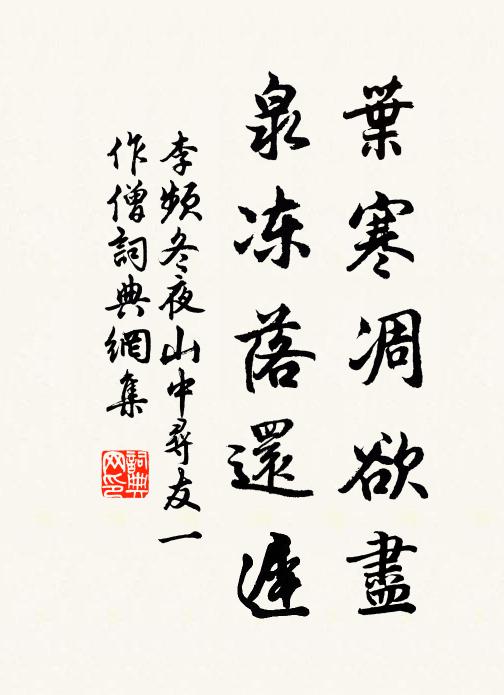 葉寒凋欲盡
泉冻落還遲
李频冬夜山中尋友一
作僧詞典網集
詞典
网印